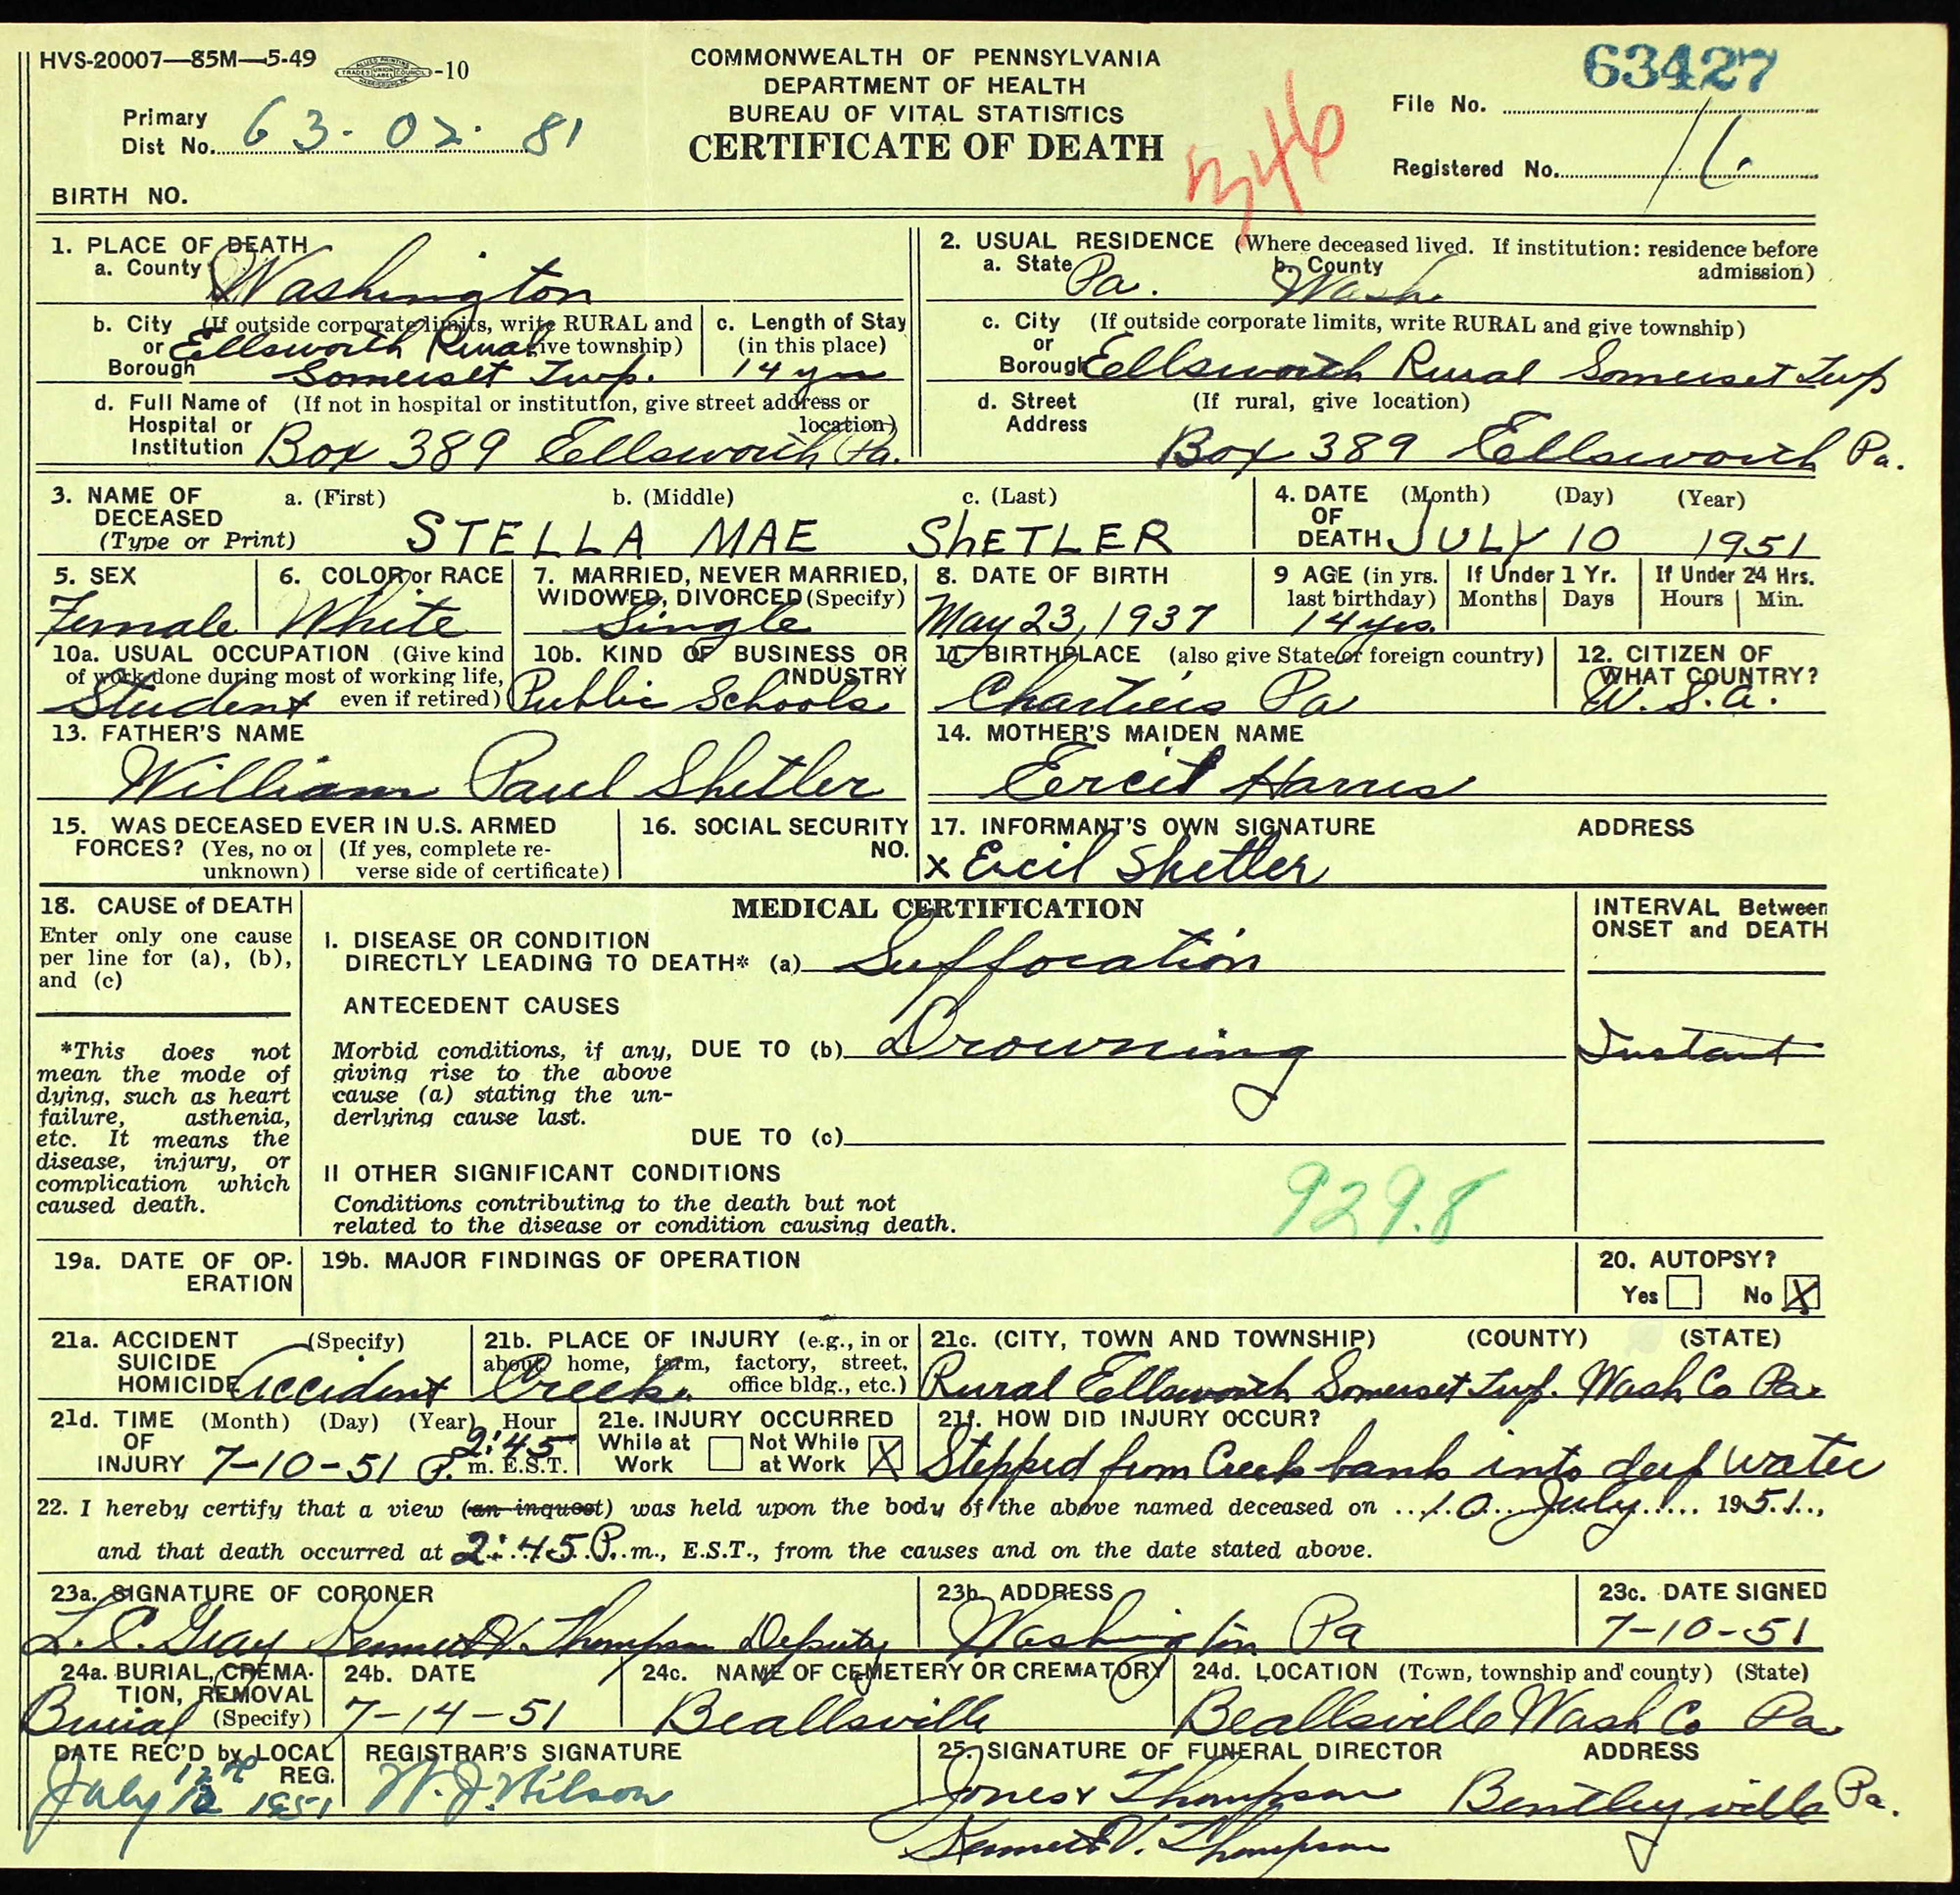 HVS-20007—85M—5-49 -10
COMMONWEALTH OF PENNSYLVANIA
DEPARTMENT OF HEALTH
BUREAU OF VITAL STATISTICS
CERTIFICATE OF DEATH
63427
File No.
346
Primary
Dist No. 63-02-81
Registered No.
BIRTH NO.
1. PLACE OF DEATH
a. County Washington
b. City (If outside corporate limits, write RURAL and
or give township)
Borough
Ellsworth Rural
Somerset Twp.
c. Length of Stay
(in this place)
14 yrs
d. Full Name of (If not in hospital or institution, give street address or
Hospital or location)
Institution Box 389 Ellsworth Pa.
2. USUAL RESIDENCE (Where deceased lived. If institution: residence before
admission)
a. State Pa. b. County Wash.
c. City (If outside corporate limits, write RURAL and give township)
or
Borough Ellsworth Rural Somerset Twp
d. Street (If rural, give location)
Address Box 389 Ellsworth Pa.
3. NAME OF a. (First) b. (Middle) c. (Last)
DECEASED
(Type or Print) STELLA MAE ShETLER
4. DATE (Month) (Day) (Year)
OF
DEATH JULY 10 1951
5. SEX
Female
6. COLOR or RACE
White
7. MARRIED, NEVER MARRIED,
WIDOWED, DIVORCED (Specify)
Single
8. DATE OF BIRTH
May 23, 1937
9 AGE (in yrs.
last birthday)
14 yrs.
If Under 1 Yr.
Months Days
If Under 24 Hrs.
Hours Min.
10a. USUAL OCCUPATION (Give kind
of work done during most of working life,
even if retired)
Student
10b. KIND OF BUSINESS OR
INDUSTRY
Public Schools
11. BIRTHPLACE (also give State or foreign country)
Chartiers Pa
12. CITIZEN OF
WHAT COUNTRY?
U.S.a.
13. FATHER'S NAME
William Paul Shetler
14. MOTHER'S MAIDEN NAME
Ercil Harris
15. WAS DECEASED EVER IN U.S. ARMED
FORCES? (Yes, no or (If yes, complete re-
unknown) verse side of certificate)
16. SOCIAL SECURITY
NO.
17. INFORMANT'S OWN SIGNATURE ADDRESS
x Ercil Shetler
18. CAUSE of DEATH
Enter only one cause
per line for (a), (b),
and (c)
*This does not
mean the mode of
dying, such as heart
failure, asthenia,
etc. It means the
disease, injury, or
complication which
caused death.
MEDICAL CERTIFICATION
I. DISEASE OR CONDITION
DIRECTLY LEADING TO DEATH* (a) Suffocation
ANTECEDENT CAUSES
Morbid conditions, if any, DUE TO (b) Drowning
giving rise to the above
cause (a) stating the un-
derlying cause last.
DUE TO (c)
II OTHER SIGNIFICANT CONDITIONS
Conditions contributing to the death but not
related to the disease or condition causing death.
929.8
INTERVAL Between
ONSET and DEATH
Instant
19a. DATE OF OP-
ERATION
19b. MAJOR FINDINGS OF OPERATION
20. AUTOPSY?
Yes No X
21a. ACCIDENT (Specify)
SUICIDE
HOMICIDE Accident
21b. PLACE OF INJURY (e.g., in or
about home, farm, factory, street,
office bldg., etc.)
Creek.
21c. (CITY, TOWN AND TOWNSHIP) (COUNTY) (STATE)
Rural Ellsworth Somerset Twp. Wash Co Pa.
21d. TIME (Month) (Day) (Year) Hour
OF
INJURY 7-10-51 2:45 P. m. E.S.T.
21e. INJURY OCCURRED
While at Not While
Work at Work X
21f. HOW DID INJURY OCCUR?
Stepped from Creek bank into deep water
22. I hereby certify that a view (an inquest) was held upon the body of the above named deceased on 10 July 1951,
and that death occurred at 2:45 P.m., E.S.T., from the causes and on the date stated above.
23a. SIGNATURE OF CORONER
L.C. Gray Kenneth V. Thompson Deputy
23b. ADDRESS
Washington Pa
23c. DATE SIGNED
7-10-51
24a. BURIAL, CREMA-
TION, REMOVAL
(Specify)
Burial
24b. DATE
7-14-51
24c. NAME OF CEMETERY OR CREMATORY
Beallsville
24d. LOCATION (Town, township and county) (State)
Beallsville Wash Co Pa
DATE REC'D by LOCAL
REG.
July 12th 1951
REGISTRAR'S SIGNATURE
W. J. Wilson
25. SIGNATURE OF FUNERAL DIRECTOR ADDRESS
Jones & Thompson Bentleyville Pa.
Kenneth V. Thompson